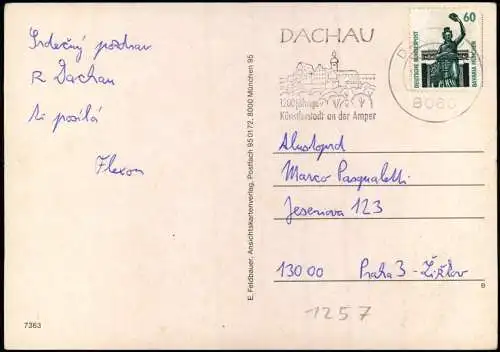 Srdečný pozdrav
z Dachau
ti posílá
7363
E. Feldbauer, Ansichtskartenverlag, Postfach 95 01 72, 8000 München 95
DACHAU
1200jährige
Künstlerstadt an der Amper
8060
60
DEUTSCHE BUNDESPOST
BAVARIA MÜNCHEN
Marco Pasqualetti
Jeseniova 123
130 00 Praha 3 - Žižkov
8
1257